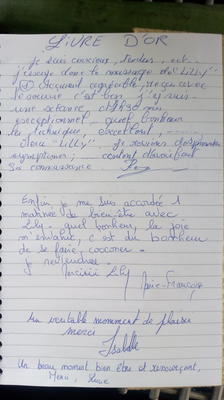 LIVRE D'OR
Je suis curieux, tendu, et
j'essaye donc le massage de "LILLY"
agréable, reçu avec
le sourire c'est bon, j'y suis
une séance, d'1h30 min
exceptionnel, quel bonheur
la technique, excellent,
donc "LILLY" je reviens
content d'avoir fait
Sa connaissance
Enfin, je me suis accordée 1
matinée de bien-être avec
Lily. quel bonheur, la joie
m'envahie, c'est du bonheur
de se faire, cocooner.
Je reviendrai.
Merci Lily
Marie-Françoise
Un veritable moment de plaisir
merci
Isabelle
Un beau moment bien être et ressourçant,
Merci,